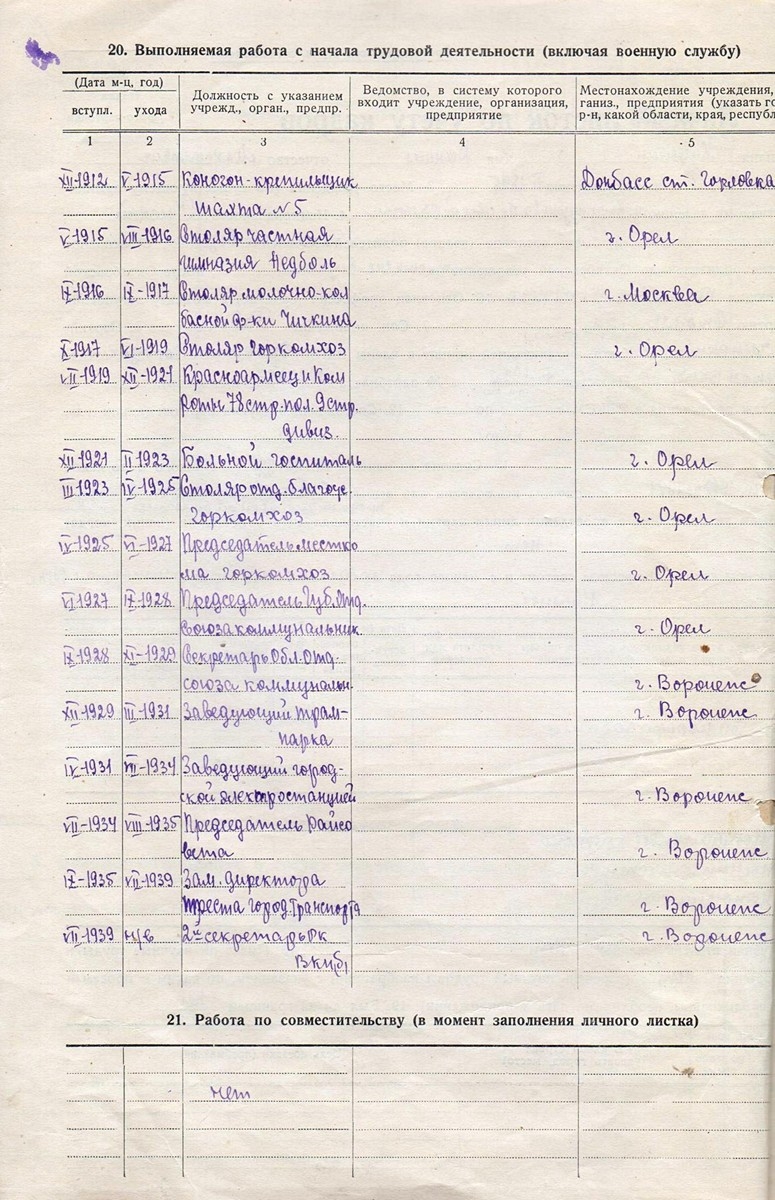 20. Выполняемая работа с начала трудовой деятельности (включая военную службу)
(Дата м-ц, год)
вступл.
ухода
Должность с указанием
учрежд., орган., предпр.
Ведомство, в систему которого
входит учреждение, организация,
предприятие
Местонахождение учреждения,
ганиз., предприятия (указать го
р-н, какой области, края, респуб
1 2 3 4 5
XII-1912 V-1915 Коногон-крепильщик Донбасс ст. Горловка
шахта №5
V-1915 VIII-1916 Столяр частная г. Орел
гимназия Недболь
IX-1916 IX-1917 Столяр молочно-кол г. Москва
басной ф-ки Чичкина
X-1917 VI-1919 Столяр горкомхоз г. Орел
VII-1919 XII-1921 Красноармеец и Ком
роты 78 стр. пол. 9 стр.
дивиз.
XII-1921 II-1923 Больной госпиталь г. Орел
III-1923 IV-1925 Столяр отд. благоус.
горкомхоз г. Орел
IV-1925 VI-1927 Председатель местко
ма горкомхоз г. Орел
VI-1927 IX-1928 Председатель Губ. Отд.
союза коммунальник. г. Орел
IX-1928 XI-1929 Секретарь Обл. Отд.
союза коммунальн. г. Воронеж
XII-1929 III-1931 Заведующий трам- г. Воронеж
парка
IV-1931 VII-1934 Заведующий город-
ской электростанцией г. Воронеж
VII-1934 VIII-1935 Председатель Райсо
вета г. Воронеж
IX-1935 VII-1939 Зам. директора
треста город. Транспорта г. Воронеж
VII-1939 н/в 2й секретарь РК г. Воронеж
ВКП(б)
21. Работа по совместительству (в момент заполнения личного листка)
нет